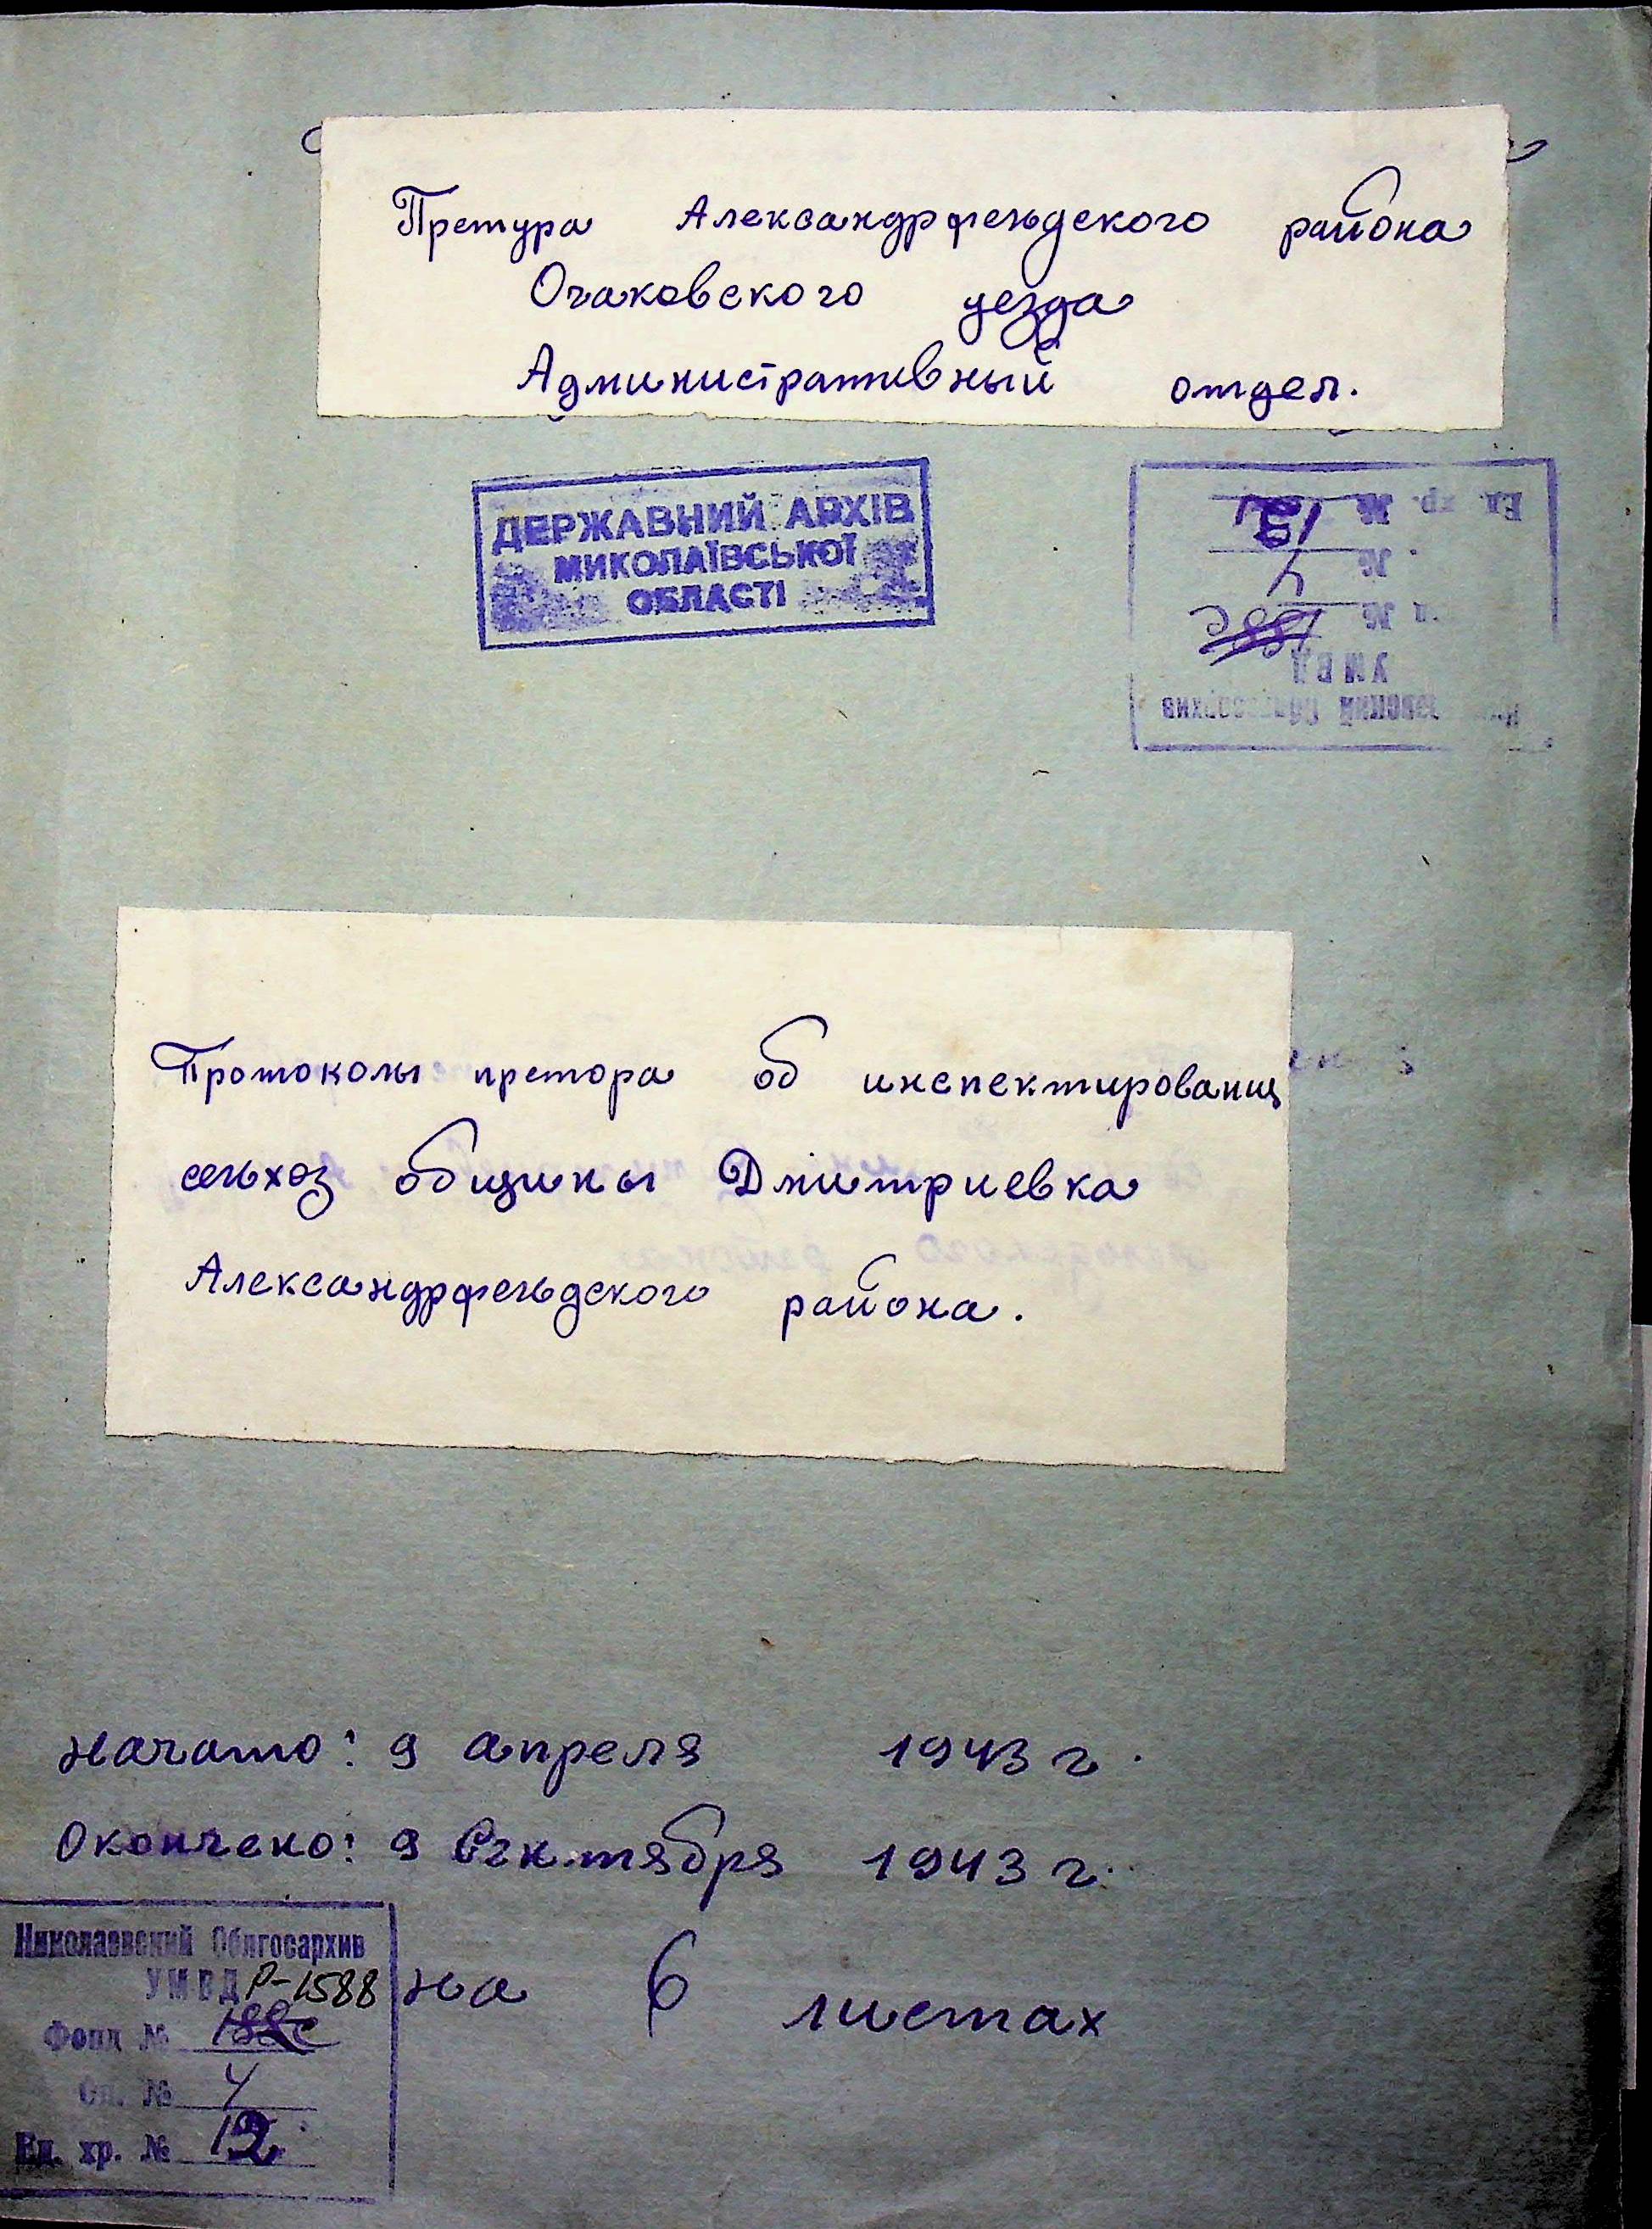 Претура Александрфельдского района
Очаковского уезда
Административный отдел.
ДЕРЖАВНИЙ АРХІВ
МИКОЛАЇВСЬКОЇ
ОБЛАСТІ
Ед. хр. № 12
№ 4
№ 188с
УМВД
Облгосархив
Протоколы претора об инспектировании
сельхоз общины Дмитриевка
Александрфельдского района.
Начато: 9 апреля 1943 г.
Окончено: 9 Сентября 1943 г.
Николаевский Облгосархив
УМВД Р-1588
Фонд № 188с
Оп. № 4
Ед. хр. № 12
на 6 листах